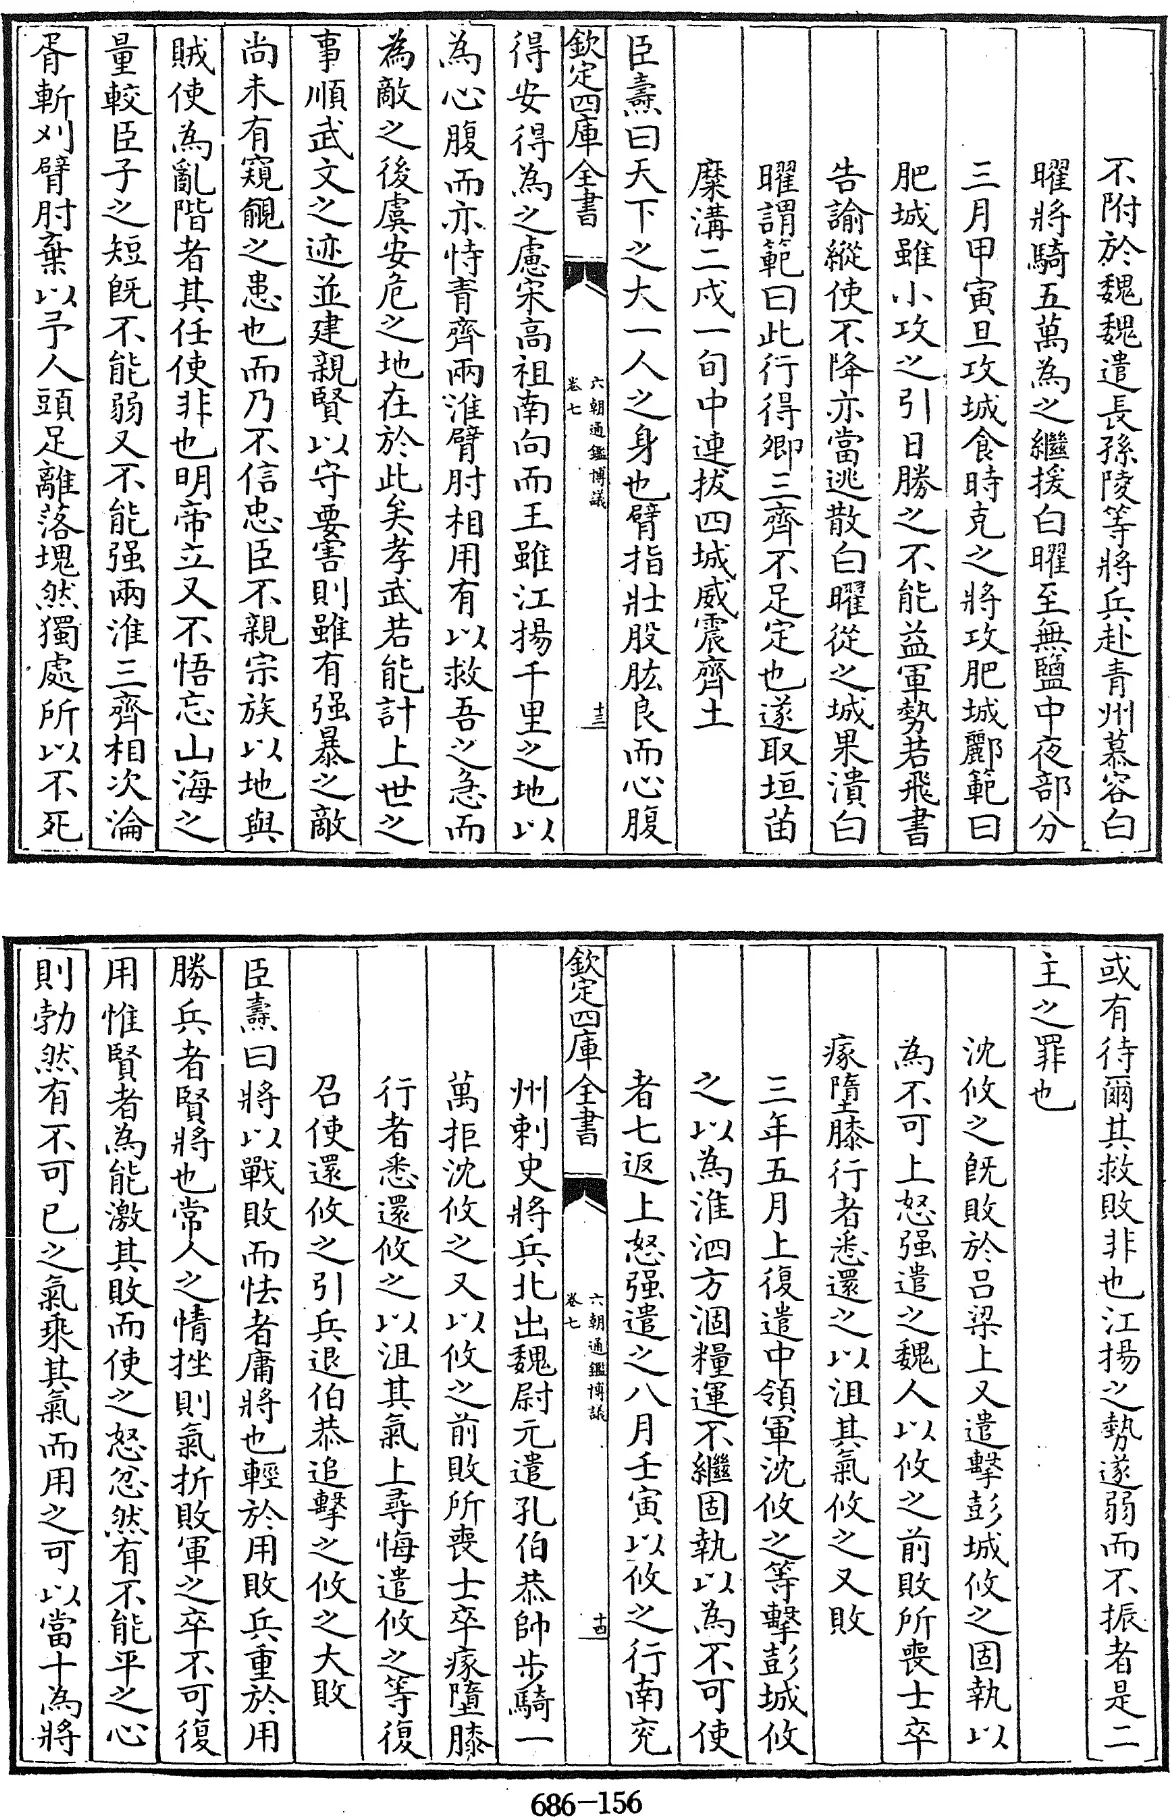 不附於魏魏遣長孫陵等將兵赴青州慕容白
曜將騎五萬為之繼援白曜至無鹽中夜部分
三月甲寅旦攻城食時克之將攻肥城酈範曰
肥城雖小攻之引日勝之不能益軍勢若飛書
告諭縱使不降亦當逃散白曜從之城果潰白
曜謂範曰此行得卿三齊不足定也遂取垣苗
糜溝二戍一旬中連拔四城威震齊土
臣燾曰天下之大一人之身也臂指壯股肱良而心腹
欽定四庫全書
六朝通鑑博議
卷七
十三
得安得為之慮宋高祖南向而王雖江揚千里之地以
為心腹而亦恃青齊兩淮臂肘相用有以救吾之急而
為敵之後虞安危之地在於此矣孝武若能計上世之
事順武文之迹並建親賢以守要害則雖有强暴之敵
尚未有窺覦之患也而乃不信忠臣不親宗族以地與
賊使為亂階者其任使非也明帝立又不悟忘山海之
量較臣子之短既不能弱又不能强兩淮三齊相次淪
胥斬刈臂肘棄以予人頭足離落塊然獨處所以不死
或有待爾其救敗非也江揚之勢遂弱而不振者是二
主之罪也
沈攸之既敗於呂梁上又遣擊彭城攸之固執以
為不可上怒强遣之魏人以攸之前敗所喪士卒
瘃墮膝行者悉還之以沮其氣攸之又敗
三年五月上復遣中領軍沈攸之等擊彭城攸
之以為淮泗方涸糧運不繼固執以為不可使
者七返上怒强遣之八月壬寅以攸之行南兖
欽定四庫全書
六朝通鑑博議
卷七
十四
州刺史將兵北出魏尉元遣孔伯恭帥步騎一
萬拒沈攸之又以攸之前敗所喪士卒瘃墮膝
行者悉還攸之以沮其氣上尋悔遣攸之等復
召使還攸之引兵退伯恭追擊之攸之大敗
臣燾曰將以戰敗而怯者庸將也輕於用敗兵重於用
勝兵者賢將也常人之情挫則氣折敗軍之卒不可復
用惟賢者為能激其敗而使之怒忿然有不能平之心
則勃然有不可已之氣乘其氣而用之可以當十為將
686-156